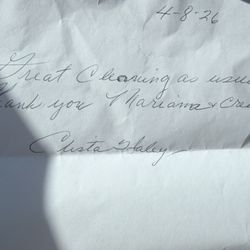 4-8-26
Great Cleaning as usu
hank you Mariama + Cre
Crista Haley